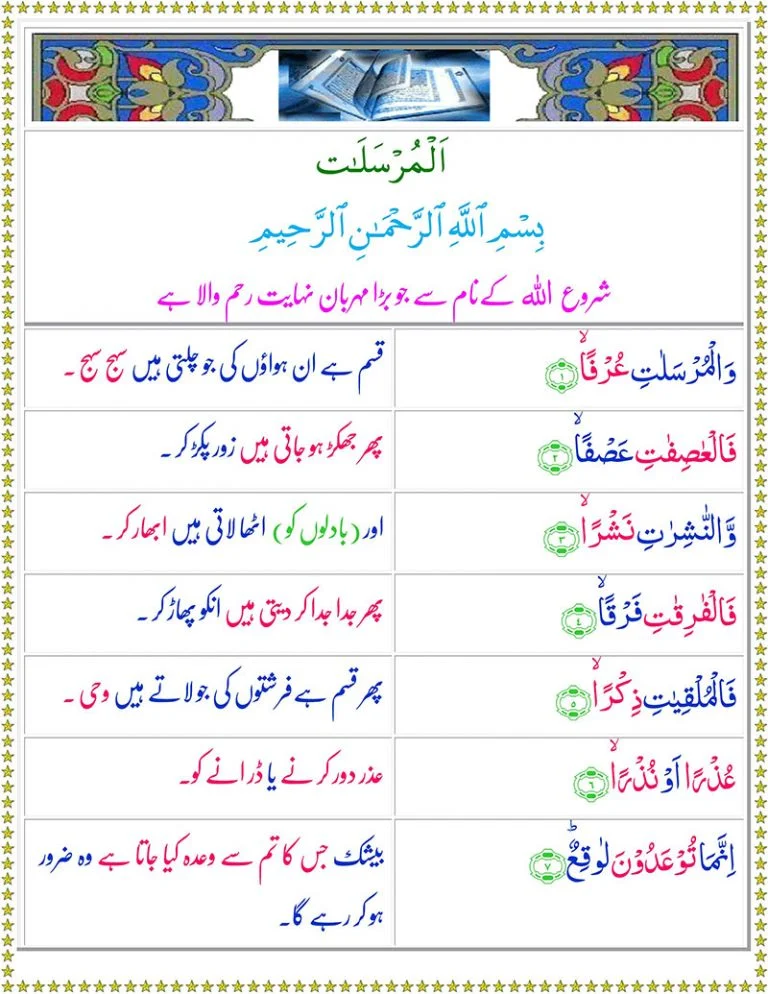 اَلْمُرْسَلَات
بِسْمِ ٱللَّهِ ٱلرَّحْمَـٰنِ ٱلرَّحِيمِ
شروع اللہ کے نام سے جو بڑا مہربان نہایت رحم والا ہے
وَالْمُرْسَلٰتِ عُرْفًاۙ ﴿۱﴾
قسم ہے ان ہواؤں کی جو چلتی ہیں سہج سہج ۔
فَالْعٰصِفٰتِ عَصْفًاۙ ﴿۲﴾
پھر جھکڑ ہو جاتی ہیں زور پکڑ کر ۔
وَّالنّٰشِرٰتِ نَشْرًاۙ ﴿۳﴾
اور (بادلوں کو) اٹھا لاتی ہیں ابھار کر ۔
فَالْفٰرِقٰتِ فَرْقًاۙ ﴿٤﴾
پھر جدا جدا کر دیتی ہیں انکو پھاڑ کر ۔
فَالْمُلْقِيٰتِ ذِكْرًاۙ ﴿۵﴾
پھر قسم ہے فرشتوں کی جو لاتے ہیں وحی ۔
عُذْرًا اَوْ نُذْرًاۙ ﴿٦﴾
عذر دور کرنے یا ڈرانے کو۔
اِنَّمَا تُوْعَدُوْنَ لَوٰقِعٌؕ ﴿۷﴾
بیشک جس کا تم سے وعدہ کیا جاتا ہے وہ ضرور
ہو کر رہے گا۔